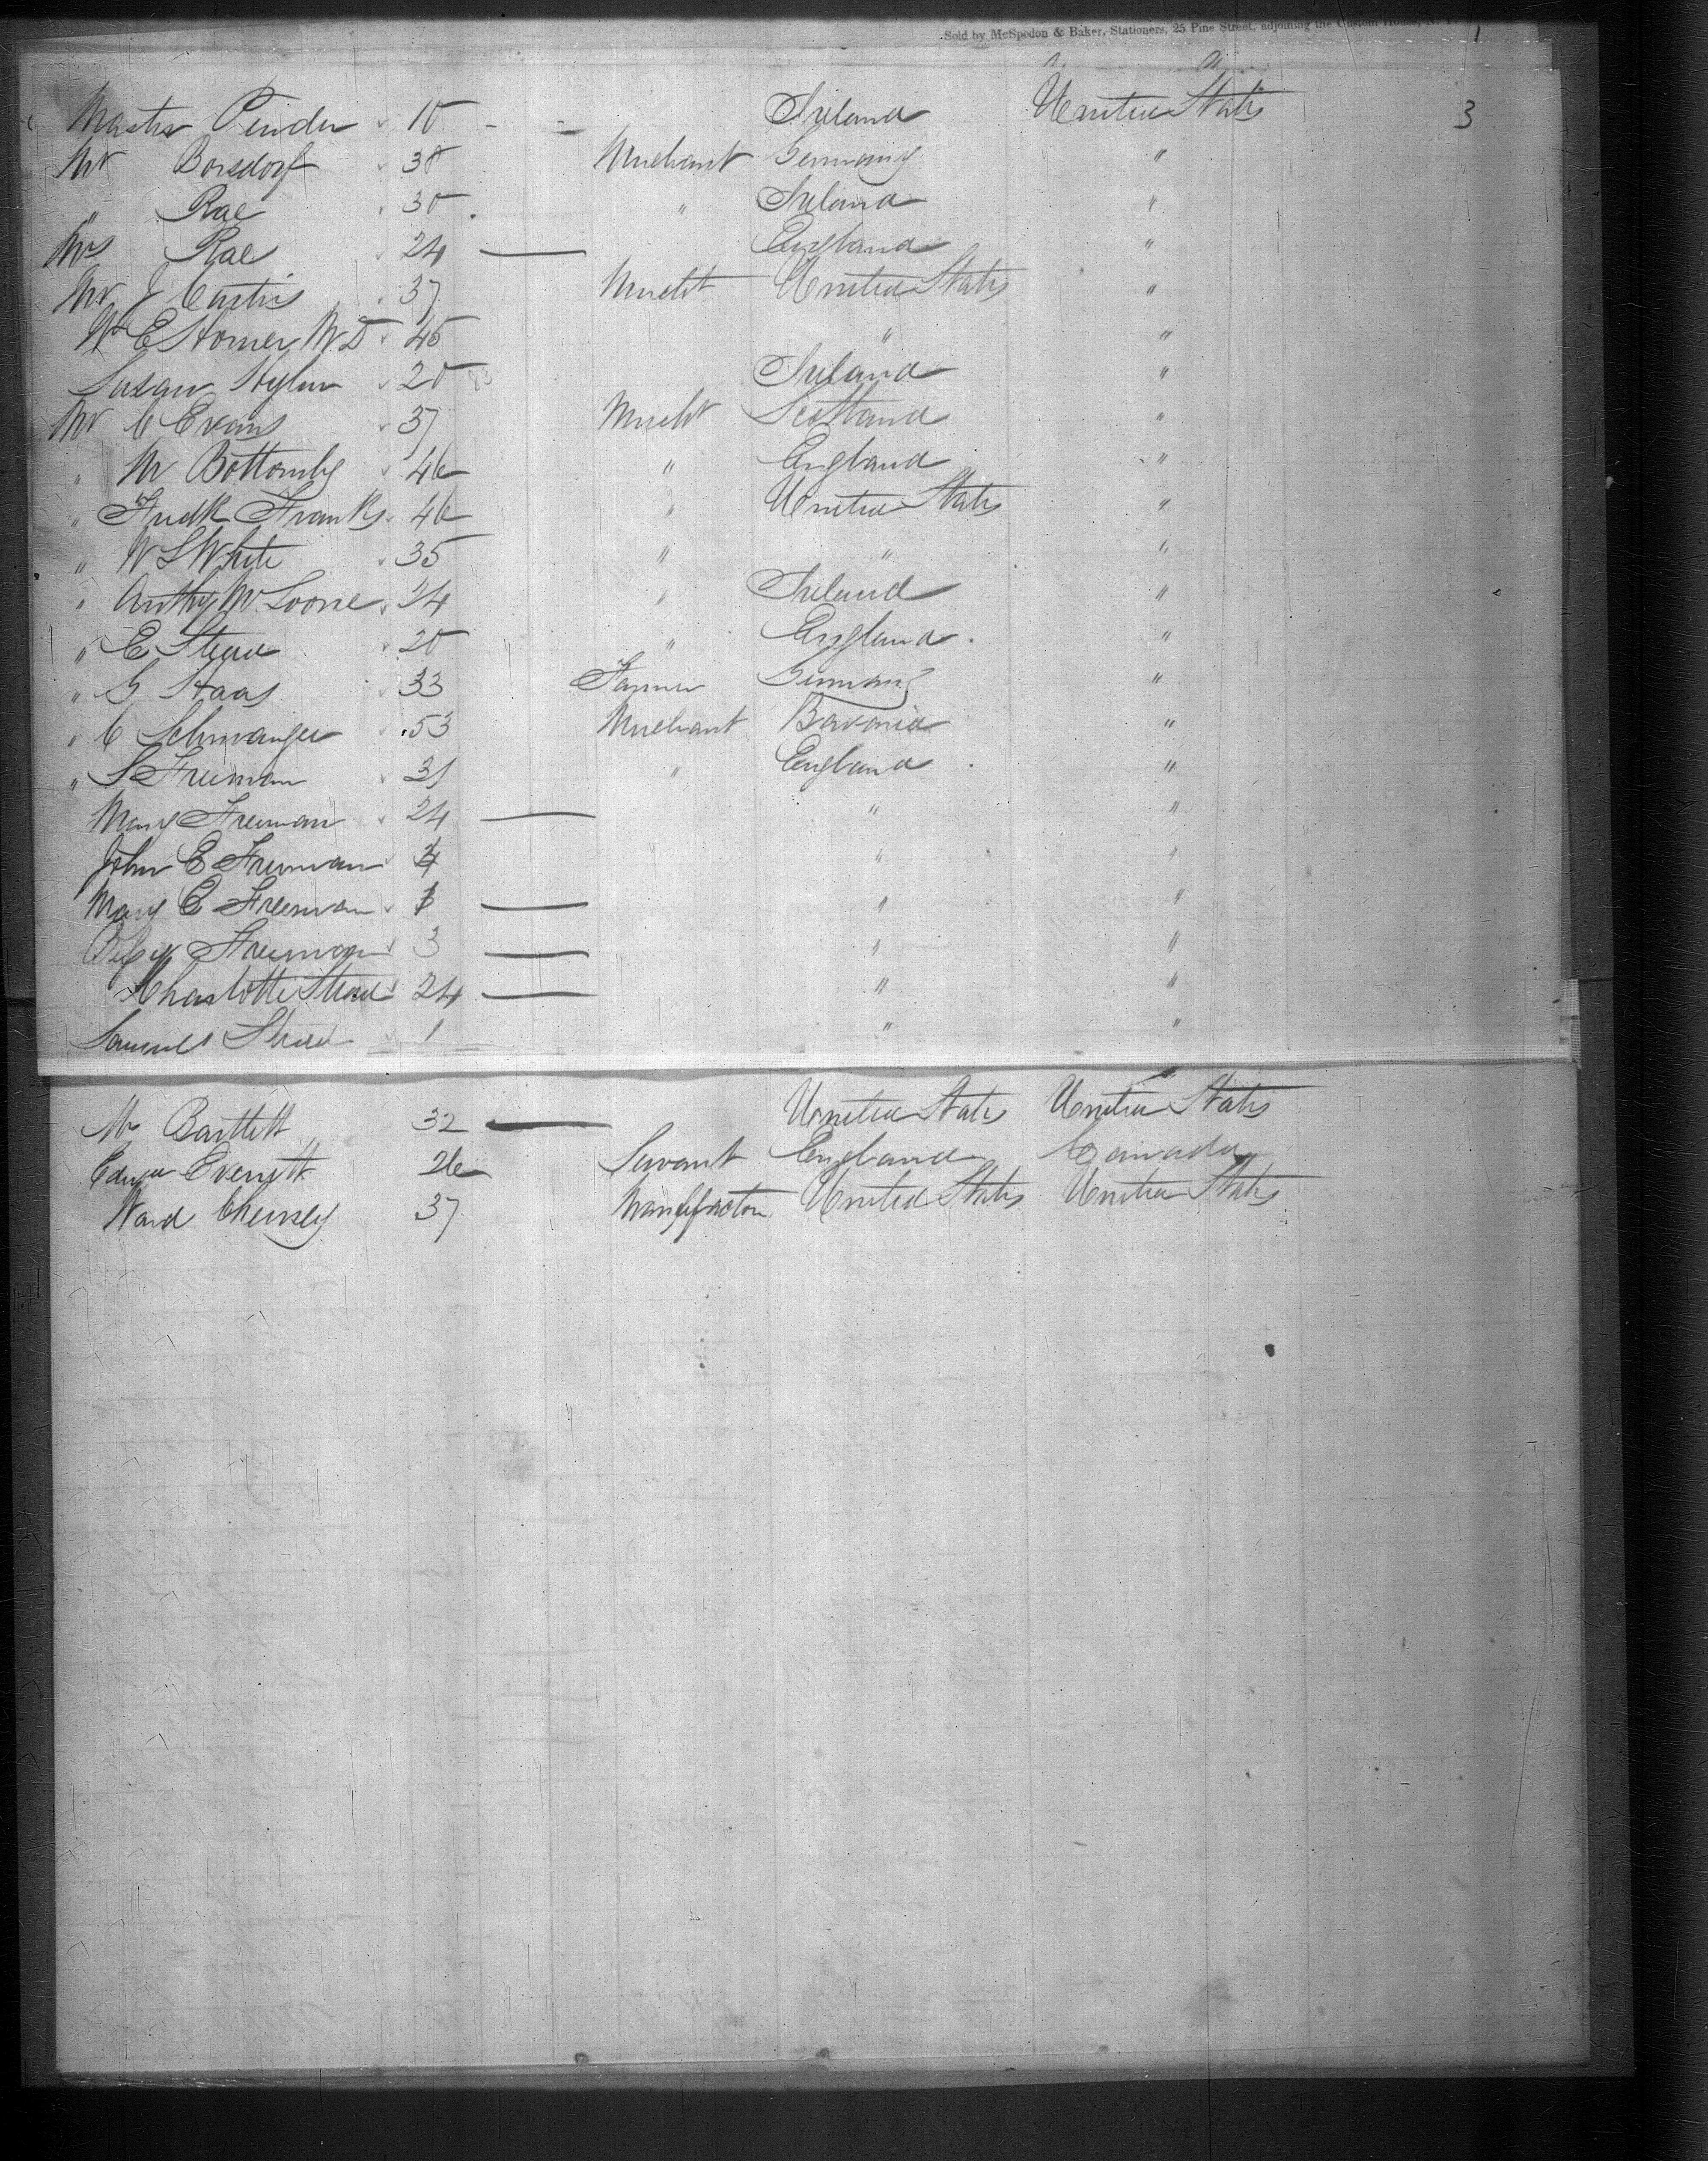 Sold by McSpedon & Baker, Stationers, 25 Pine Street, adjoining the Custom House,
Master Pinder 10 - - Ireland United States 3
Mr Borsdorf 30 Merchant Germany "
" Rae 30 " Ireland "
Mrs Rae 24 — England "
Mr J Curtis 37 Mercht United States "
Wm E Horner M D 45 " "
Susan 20 Ireland "
Mr C Evans 37 Mercht Scotland "
" M Bottomly 46 " England "
" Fredk Franks 46 " United States "
" W S White 35 " " "
" Anthy McLoone 24 " Ireland "
" E Stead 20 " England "
" G Haas 33 Farmer Germany "
" C Schwanger 53 Merchant Bavaria "
" S Freeman 31 " England "
Mary Freeman 24 — " "
John E Freeman 4 " "
Mary E Freeman 1 — " "
Freeman 3 — " "
Charlotte Stead 24 — " "
Samuel Stead 1 " "
Mr Bartlett 32 — United States United States
Edward Everett 26 Servant England Canada
Ward Cheney 37 Manufacturer United States United States